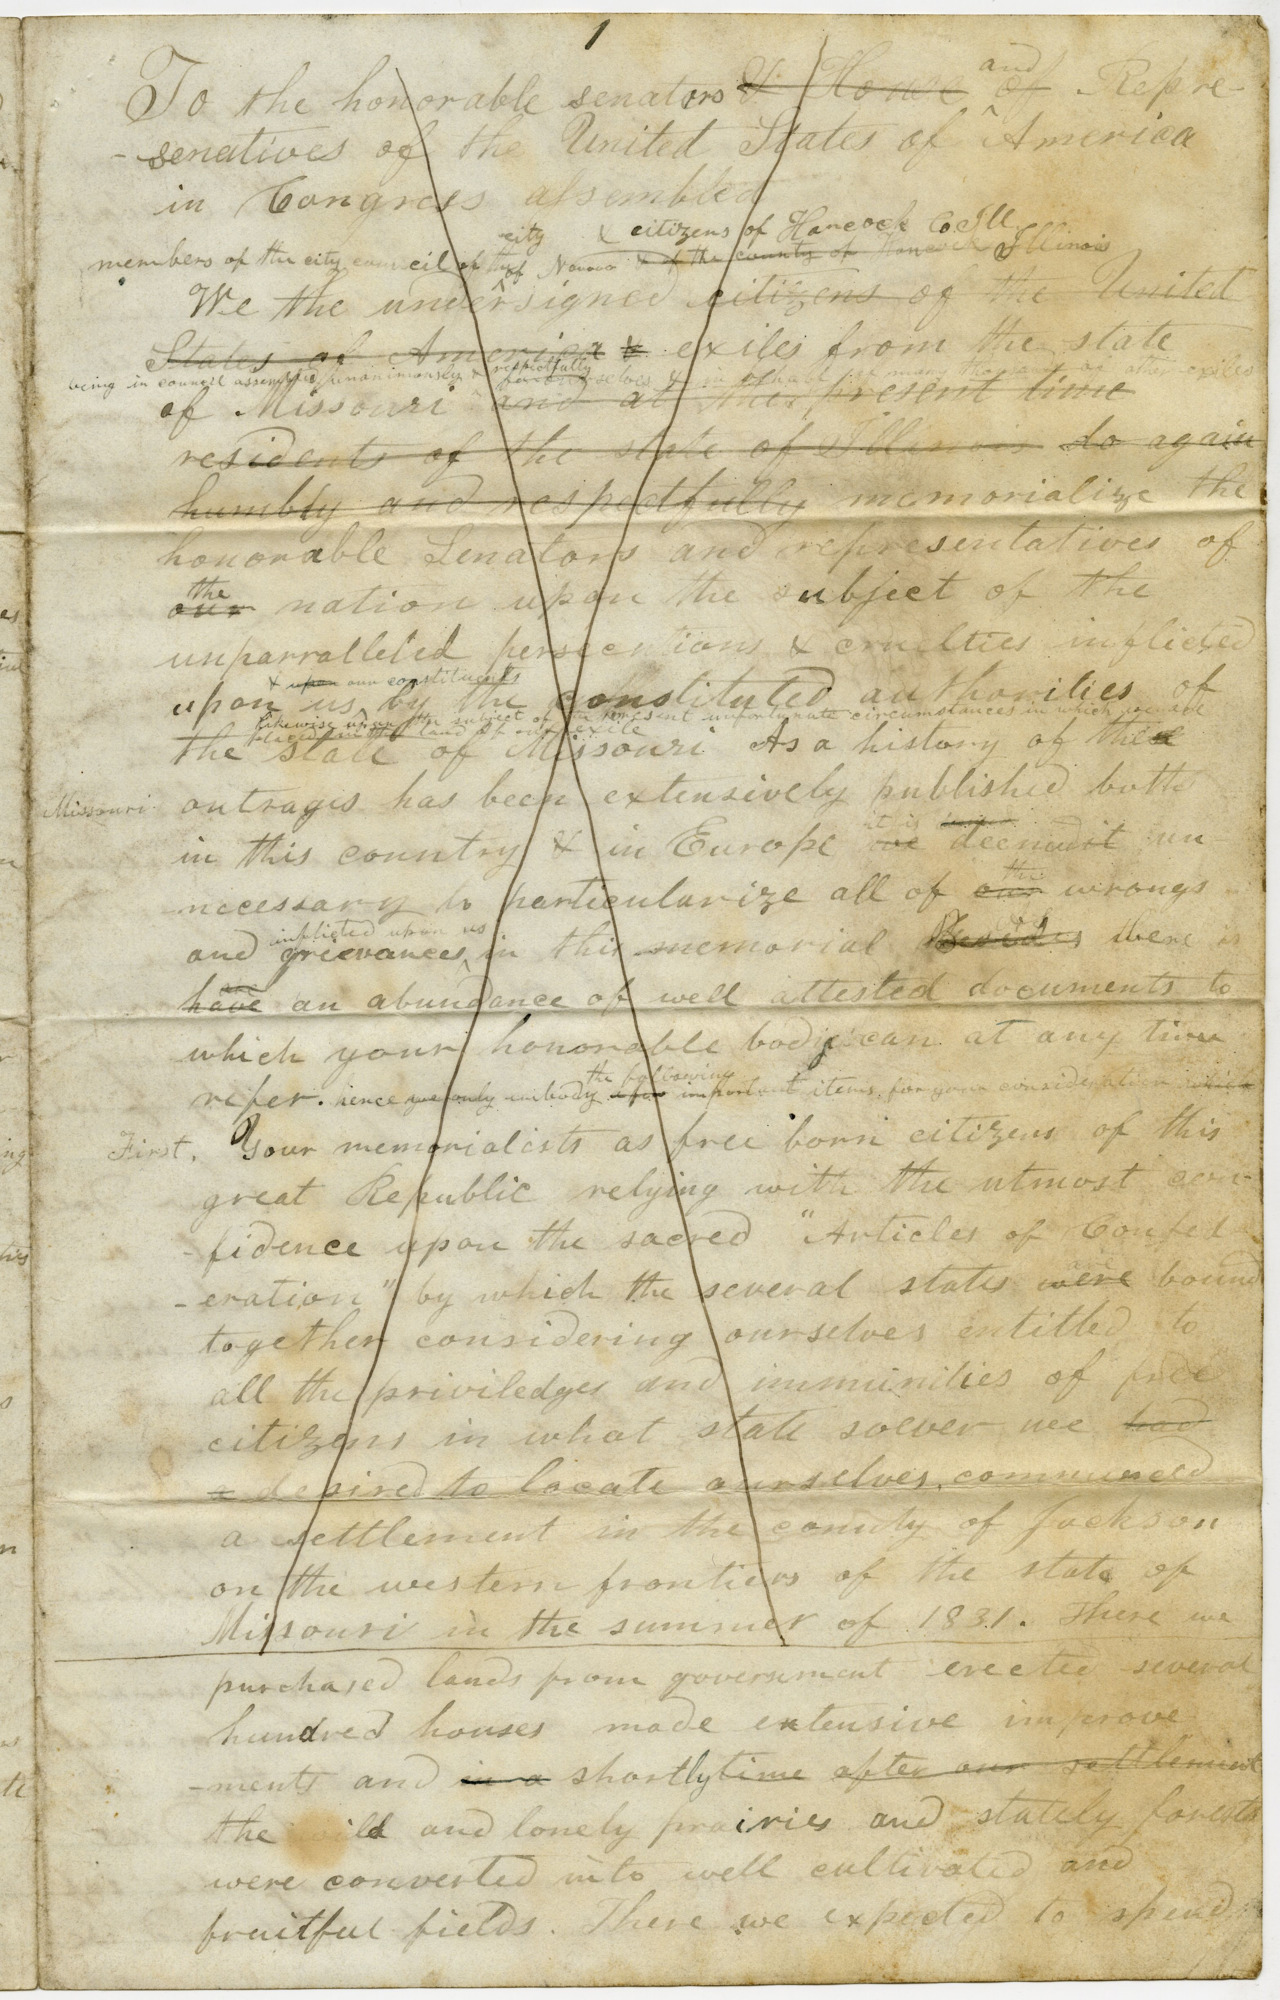 1
To the honorable senators & House and of Repre-
-senatives of the United States of America
in Congress assembled
city & citizens of Hancock Co Ill.
members of the city council of the of Nauvoo & of the county of Hancock Illinois
We the undersigned citizens of the United
States of America & exiles from the state
being in council assembled unanimously & respectfully for ourselves & in behalf of many thousands of other exiles
of Missouri and at this present time
residents of the state of Illinois do again
humbly and respectfully memorialize the
honorable Senators and representatives of
the
our nation upon the subject of the
unparralleled persecutions & cruelties inflicted
& upon our constituents
upon us by the constituted authorities of
likewise upon the subject of the present unfortunate circumstances in which we are
placed in the land of our exile
the state of Missouri As a history of these
Missouri outrages has been extensively published both
it is
in this country & in Europe we deem it un
the
necessary to particularize all of our wrongs
inflicted upon us
and grievances, in this memorial Besides there is
have an abundance of well attested documents to
which your honorable body can at any time
the following
refer. hence we only embody important items for your consideration which
First. Your memorialists as free born citizens of this
great Republic relying with the utmost con-
-fidence upon the sacred "Articles of Confed
are
-eration" by which the several states were bound
together considering ourselves entitled to
all the priviledges and immunities of free
citizens in what state soever we had
desired to locate ourselves, commenced
a settlement in the county of Jackson
on the western frontiers of the state of
Missouri in the summer of 1831. There we
purchased lands from government erected several
hundred houses made extensive improve
-ments and in a shortly time after our settlement
the wild and lonely prairies and stately forests
were converted into well cultivated and
fruitful fields. There we expected to spend